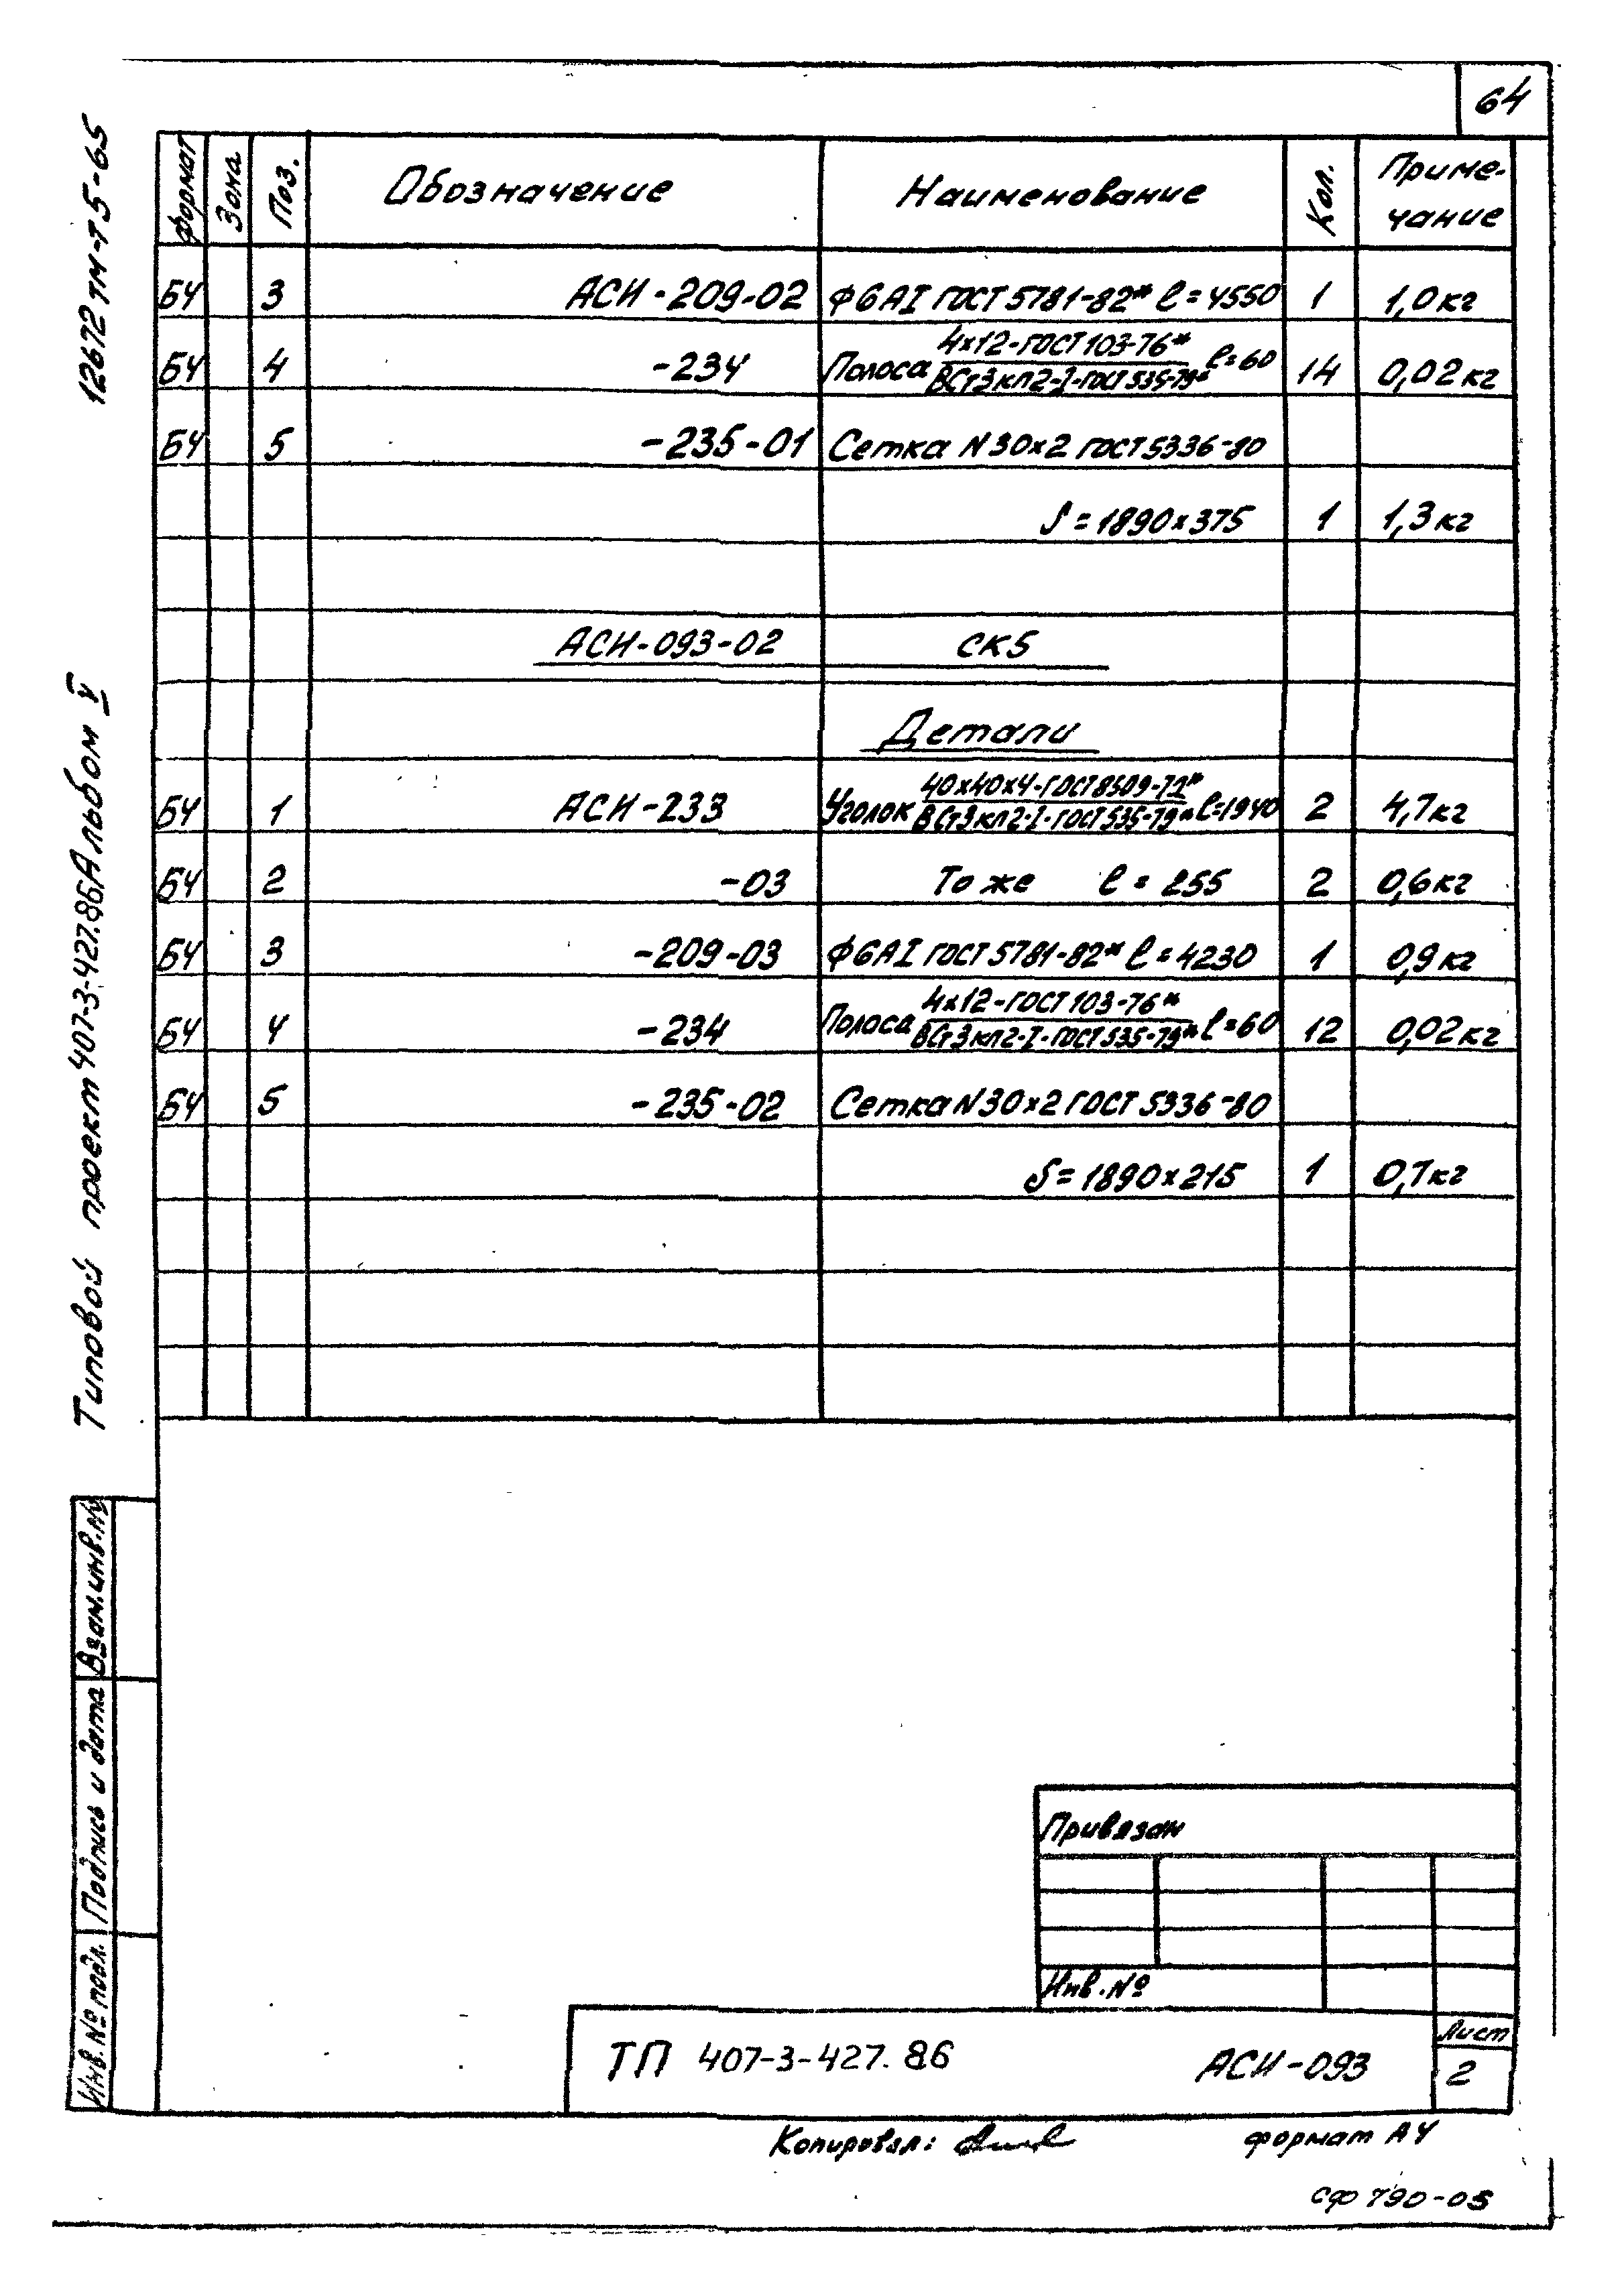 64
12672 тм-т5-65
Формат Зона Поз. Обозначение Наименование Кол. Приме-
чание
БЧ 3 АСИ-209-02 Ф6АI ГОСТ 5781-82* ℓ=4550 1 1,0кг
БЧ 4 -234 Полоса 4х12-ГОСТ 103-76* / ВСт3кп2-I-ГОСТ 535-79* ℓ=60 14 0,02кг
БЧ 5 -235-01 Сетка N30х2 ГОСТ 5336-80
S=1890х375 1 1,3кг
АСИ-093-02 СК5
Детали
БЧ 1 АСИ-233 Уголок 40х40х4-ГОСТ 8509-72* / ВСт3кп2-I-ГОСТ 535-79* ℓ=1940 2 4,7кг
БЧ 2 -03 То же ℓ=255 2 0,6кг
БЧ 3 -209-03 Ф6АI ГОСТ 5781-82* ℓ=4230 1 0,9кг
БЧ 4 -234 Полоса 4х12-ГОСТ 103-76* / ВСт3кп2-I-ГОСТ 535-79* ℓ=60 12 0,02кг
БЧ 5 -235-02 Сетка N30х2 ГОСТ 5336-80
S=1890х215 1 0,7кг
Типовой проект 407-3-427.86 Альбом V
Взам.инв.№
Подпись и дата
Инв.№ подл.
Привязан
Инв.№
ТП 407-3-427.86 АСИ-093
Лист
2
Копировал: формат А4
сф 790-05